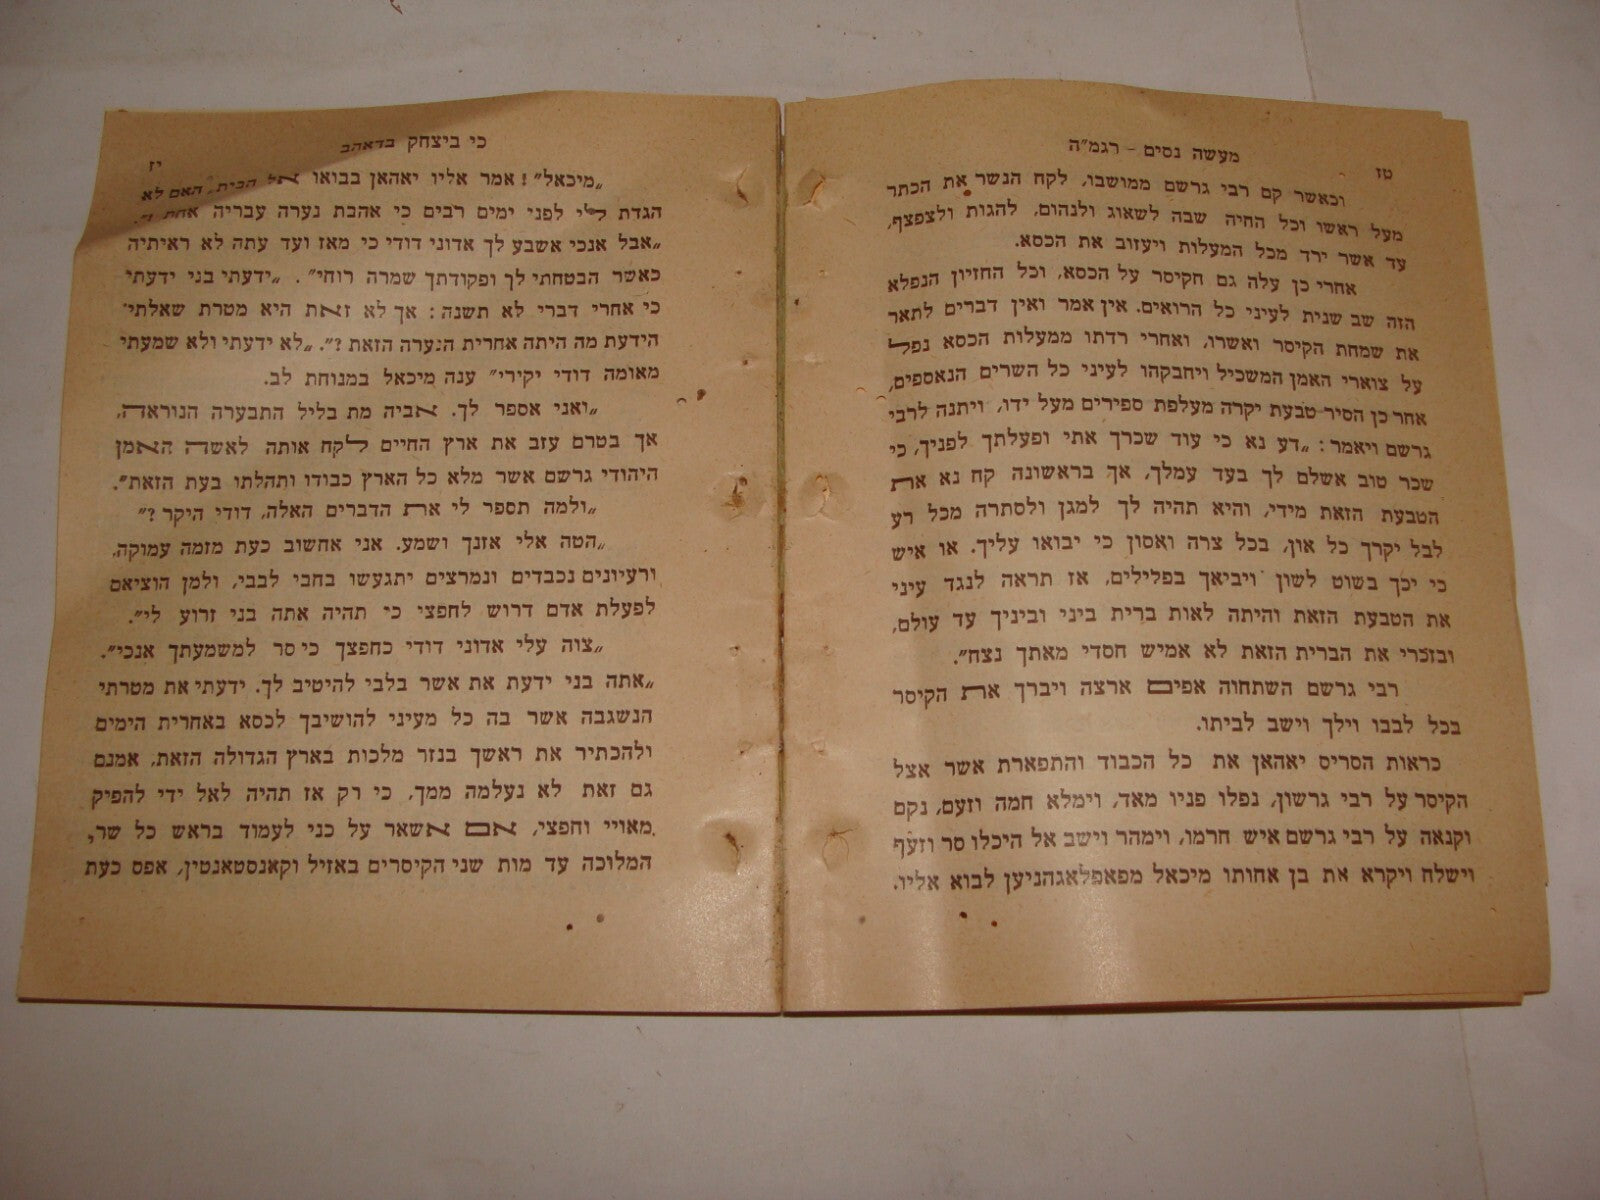 טז
מעשה נסים – רגמ״ה
וכאשר קם רבי גרשם ממושבו, לקח הנשר את הכתר
מעל ראשו וכל החיה שבה לשאוג ולנהום, להגות ולצפצף,
עד אשר ירד מכל המעלות ויעזוב את הכסא.
אחרי כן עלה גם הקיסר על הכסא, וכל החזיון הנפלא
הזה שב שנית לעיני כל הרואים. אין אמר ואין דברים לתאר
את שמחת הקיסר ואשרו, ואחרי רדתו ממעלות הכסא נפל
על צוארי האמן המשכיל ויחבקהו לעיני כל השרים הנאספים,
אחר כן הסיר טבעת יקרה מעלפת ספירים מעל ידו, ויתנה לרבי
גרשם ויאמר: „דע נא כי עוד שכרך אתי ופעלתך לפניך, כי
שכר טוב אשלם לך בעד עמלך, אך בראשונה קח נא את
הטבעת הזאת מידי, והיא תהיה לך למגן ולסתרה מכל רע
לבל יקרך כל און, בכל צרה ואסון כי יבואו עליך. או איש
כי יכך בשוט לשון ויביאך בפלילים, אז תראה לנגד עיני
את הטבעת הזאת והיתה לאות ברית ביני וביניך עד עולם,
ובזכרי את הברית הזאת לא אמיש חסדי מאתך נצח״.
רבי גרשם השתחוה אפים ארצה ויברך את הקיסר
בכל לבבו וילך וישב לביתו.
כראות הסריס יאהאן את כל הכבוד והתפארת אשר אצל
הקיסר על רבי גרשון, נפלו פניו מאד, וימלא חמה וזעם, נקם
וקנאה על רבי גרשם איש חרמו, וימהר וישב אל היכלו סר וזעף
וישלח ויקרא את בן אחותו מיכאל מפאפלאגהניען לבוא אליו.
כי ביצחק בדאהב
יז
„מיכאל״! אמר אליו יאהאן בבואו אל הבית, „האם לא
הגדת לי לפני ימים רבים כי אהבת נערה עבריה אחת
„אבל אנכי אשבע לך אדוני דודי כי מאז ועד עתה לא ראיתיה
כאשר הבטחתי לך ופקודתך שמרה רוחי״. „ידעתי בני ידעתי
כי אחרי דברי לא תשנה: אך לא זאת היא מטרת שאלתי
הידעת מה היתה אחרית הנערה הזאת?״. „לא ידעתי ולא שמעתי
מאומה דודי יקירי״ ענה מיכאל במנוחת לב.
„ואני אספר לך. אביה מת בליל התבערה הנוראה,
אך בטרם עזב את ארץ החיים לקח אותה לאשה האמן
היהודי גרשם אשר מלא כל הארץ כבודו ותהלתו בעת הזאת״.
„ולמה תספר לי את הדברים האלה, דודי היקר?״
„הטה אלי אזנך ושמע. אני אחשוב כעת מזמה עמוקה,
ורעיונים נכבדים ונמרצים יתגעשו בחבי לבבי, ולמן הוציאם
לפעלת אדם דרוש לחפצי כי תהיה אתה בני זרוע לי״.
„צוה עלי אדוני דודי כחפצך כי סר למשמעתך אנכי״.
„אתה בני ידעת את אשר בלבי להיטיב לך. ידעתי את מטרתי
הנשגבה אשר בה כל מעיני להושיבך לכסא באחרית הימים
ולהכתיר את ראשך בנזר מלכות בארץ הגדולה הזאת, אמנם
גם זאת לא נעלמה ממך, כי רק אז תהיה לאל ידי להפיק
מאויי וחפצי, אם אשאר על כני לעמוד בראש כל שר,
המלוכה עד מות שני הקיסרים באזיל וקאנסטאנטין, אפס כעת